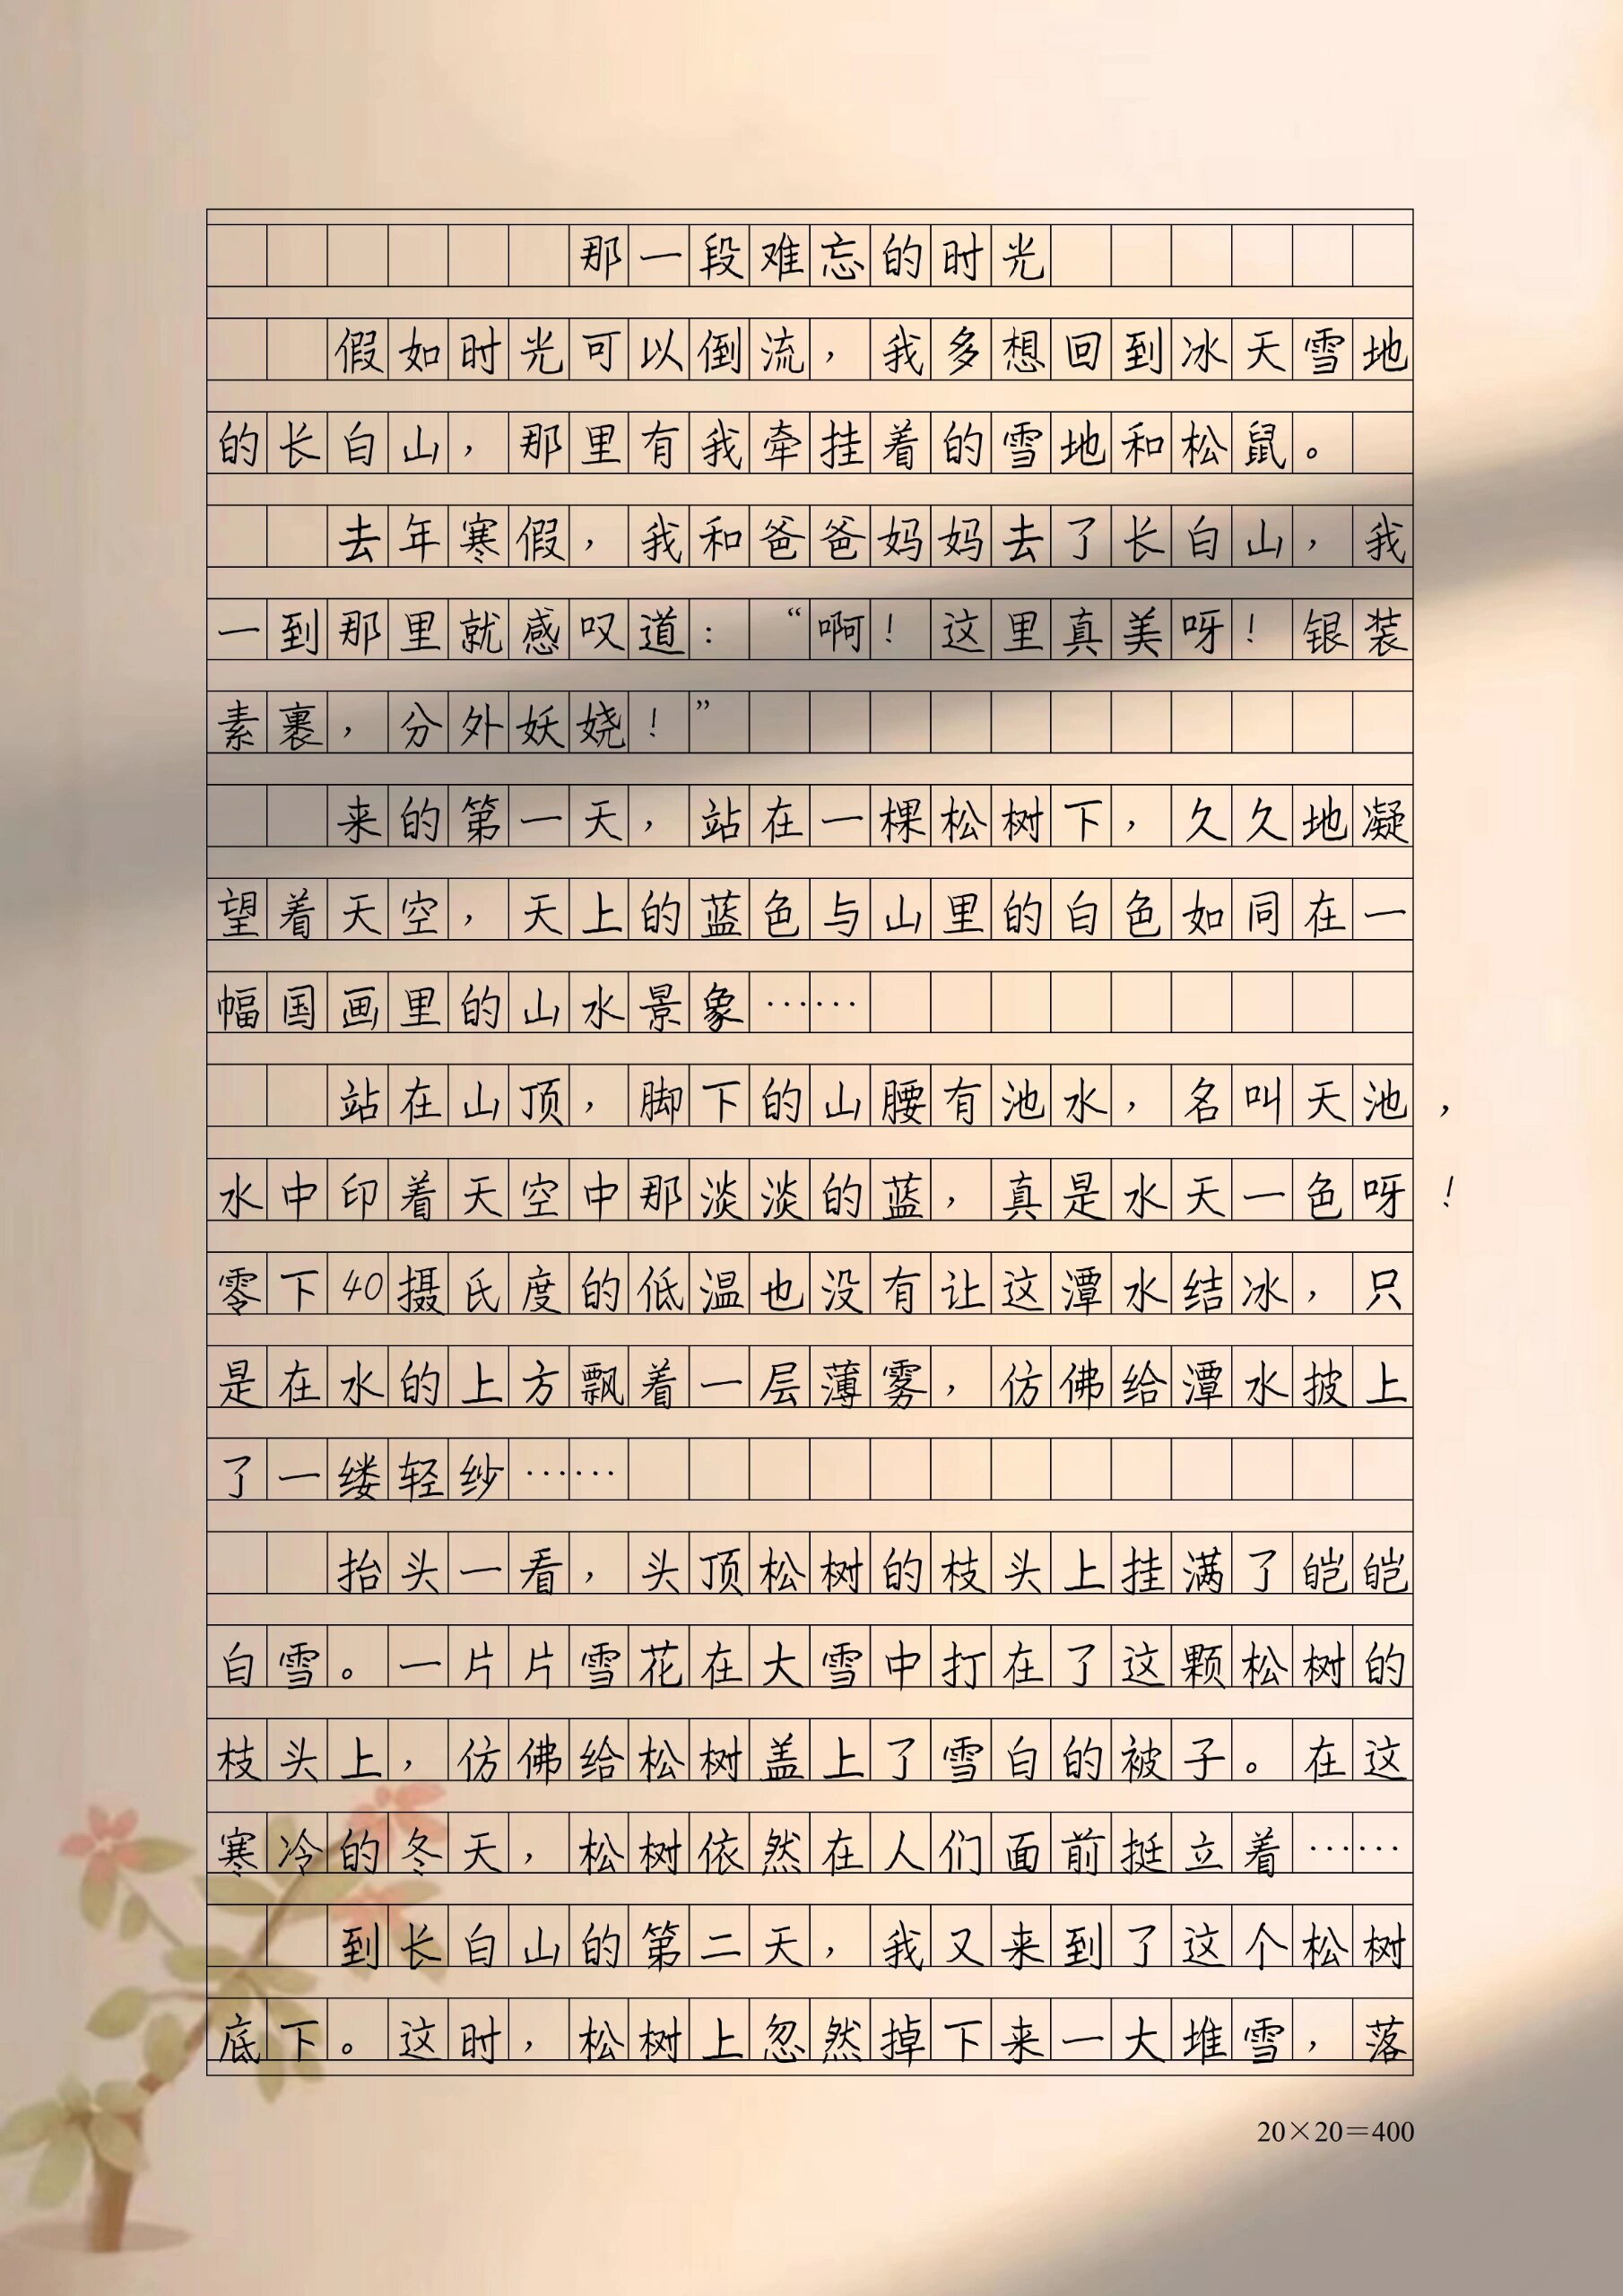 那一段难忘的时光
假如时光可以倒流，我多想回到冰天雪地
的长白山，那里有我牵挂着的雪地和松鼠。
去年寒假，我和爸爸妈妈去了长白山，我
一到那里就感叹道：“啊！这里真美呀！银装
素裹，分外妖娆！”
来的第一天，站在一棵松树下，久久地凝
望着天空，天上的蓝色与山里的白色如同在一
幅国画里的山水景象……
站在山顶，脚下的山腰有池水，名叫天池，
水中印着天空中那淡淡的蓝，真是水天一色呀！
零下40摄氏度的低温也没有让这潭水结冰，只
是在水的上方飘着一层薄雾，仿佛给潭水披上
了一缕轻纱……
抬头一看，头顶松树的枝头上挂满了皑皑
白雪。一片片雪花在大雪中打在了这颗松树的
枝头上，仿佛给松树盖上了雪白的被子。在这
寒冷的冬天，松树依然在人们面前挺立着……
到长白山的第二天，我又来到了这个松树
底下。这时，松树上忽然掉下来一大堆雪，落
20×20=400